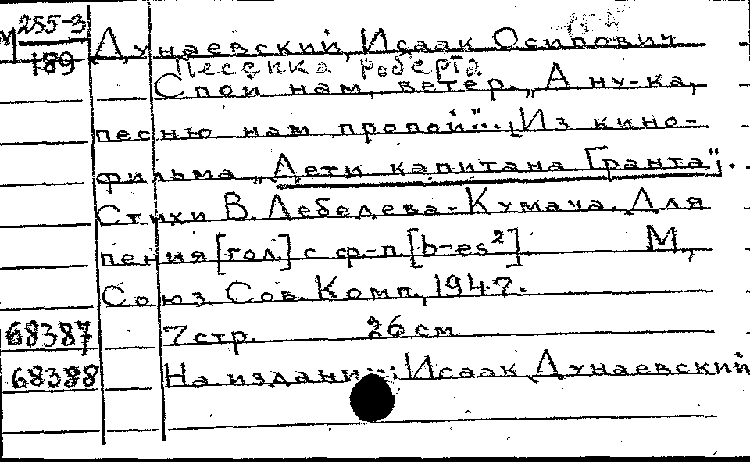 М 255-3
189
Дунаевский, Исаак Осипович
Песенка Роберта
Спой нам, ветер. „А ну-ка,
песню нам пропой"... [Из кино-
фильма „Дети капитана Гранта"].
Стихи В. Лебедева-Кумача. Для
пения [гол] с ф-п. [b-es²]. М.,
Союз Сов. Комп., 1947.
68387 7 стр. 26 см
68388 На издании: Исаак Дунаевский